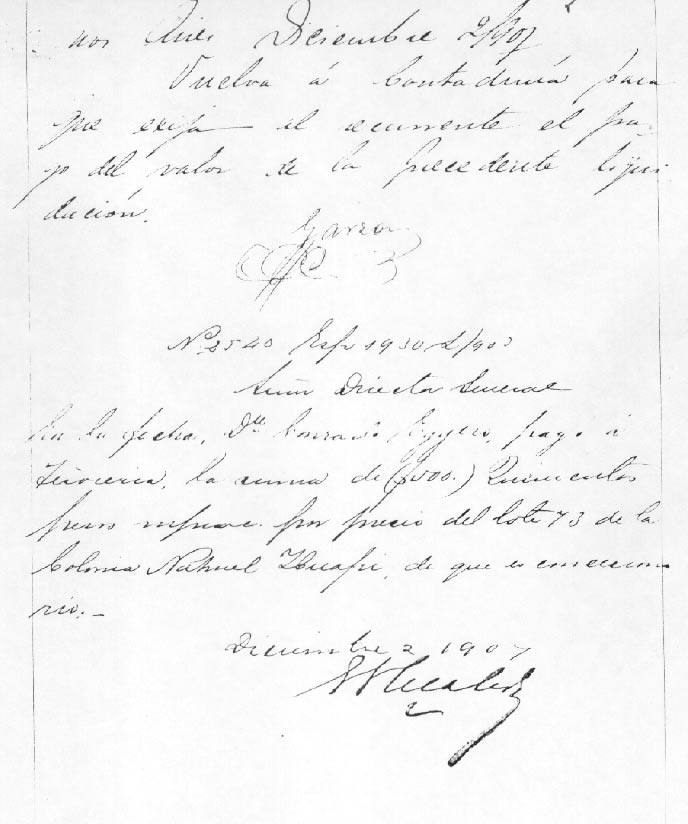 nos Aires Diciembre 2/907
Vuelva á Contaduría para
que exija al recurrente el pa-
go del valor de la precedente liqui
dación.
Garzon
Nº 2540 Exp 1930 L/903
Señor Director General
En la fecha, Dn Conrado Eggers, pagó á
Tesorería, la suma de ($500.) Quinientos
pesos por precio del lote 73 de la
Colonia Nahuel Huapi, de que es concesiona
rio.-
Diciembre 2 1907